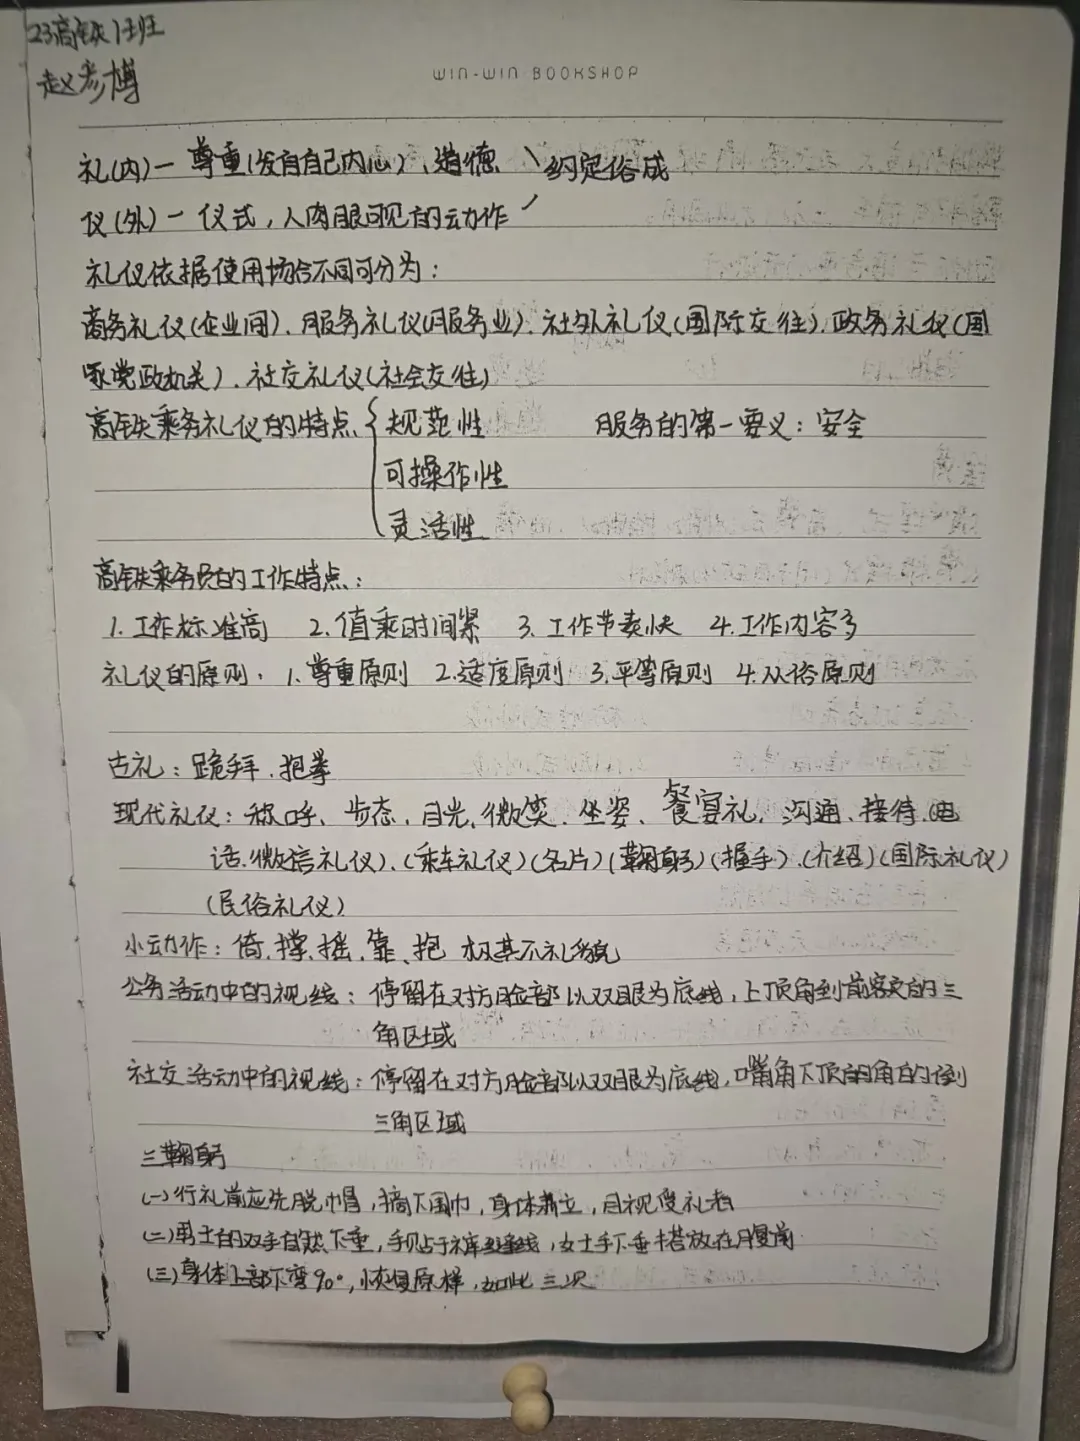 23高铁1班
赵彦博
WIN-WIN BOOKSHOP
礼(内)一 尊重(发自自己内心)、道德 约定俗成
仪(外)一 仪式,人肉眼可见的动作
礼仪依据使用场合不同可分为:
商务礼仪(企业间)、服务礼仪(服务业)、社外礼仪(国际交往),政务礼仪(国
家党政机关)、社交礼仪(社会交往)
高铁乘务礼仪的特点 { 规范性 服务的第一要义:安全
可操作性
灵活性
高铁乘务员的工作特点:
1. 工作标准高 2. 值乘时间紧 3. 工作节奏快 4. 工作内容多
礼仪的原则: 1. 尊重原则 2. 适度原则 3. 平等原则 4. 从俗原则
古礼:跪拜、抱拳
现代礼仪:称呼、步态、目光、微笑、坐姿、餐宴礼、沟通、接待、(电
话、微信礼仪)、(乘车礼仪)(名片)(鞠躬)(握手)、(介绍)(国际礼仪)
(民俗礼仪)
小动作:倚、撑、摇、靠、抱 极其不礼貌
公务活动中的视线:停留在对方脸部以双眼为底线,上顶角到前额的三
角区域
社交活动中的视线:停留在对方脸部以双眼为底线,嘴角下顶的角的倒
三角区域
三鞠躬
(一)行礼前应先脱帽,摘下围巾,身体肃立,目视受礼者
(二)男士的双手自然下垂,手贴于裤缝线,女士手下垂搭放在腹前
(三)身体上部下弯90°,恢复原样,如此三次